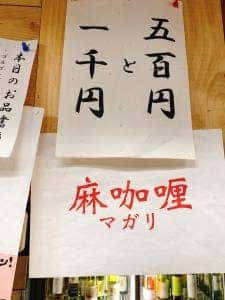 五百円
と
一千円
麻咖喱
マガリ
本日のお品書
ン!